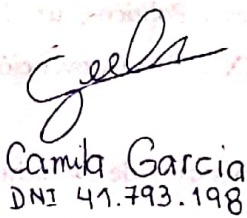 Camila Garcia
DNI 41.793.198